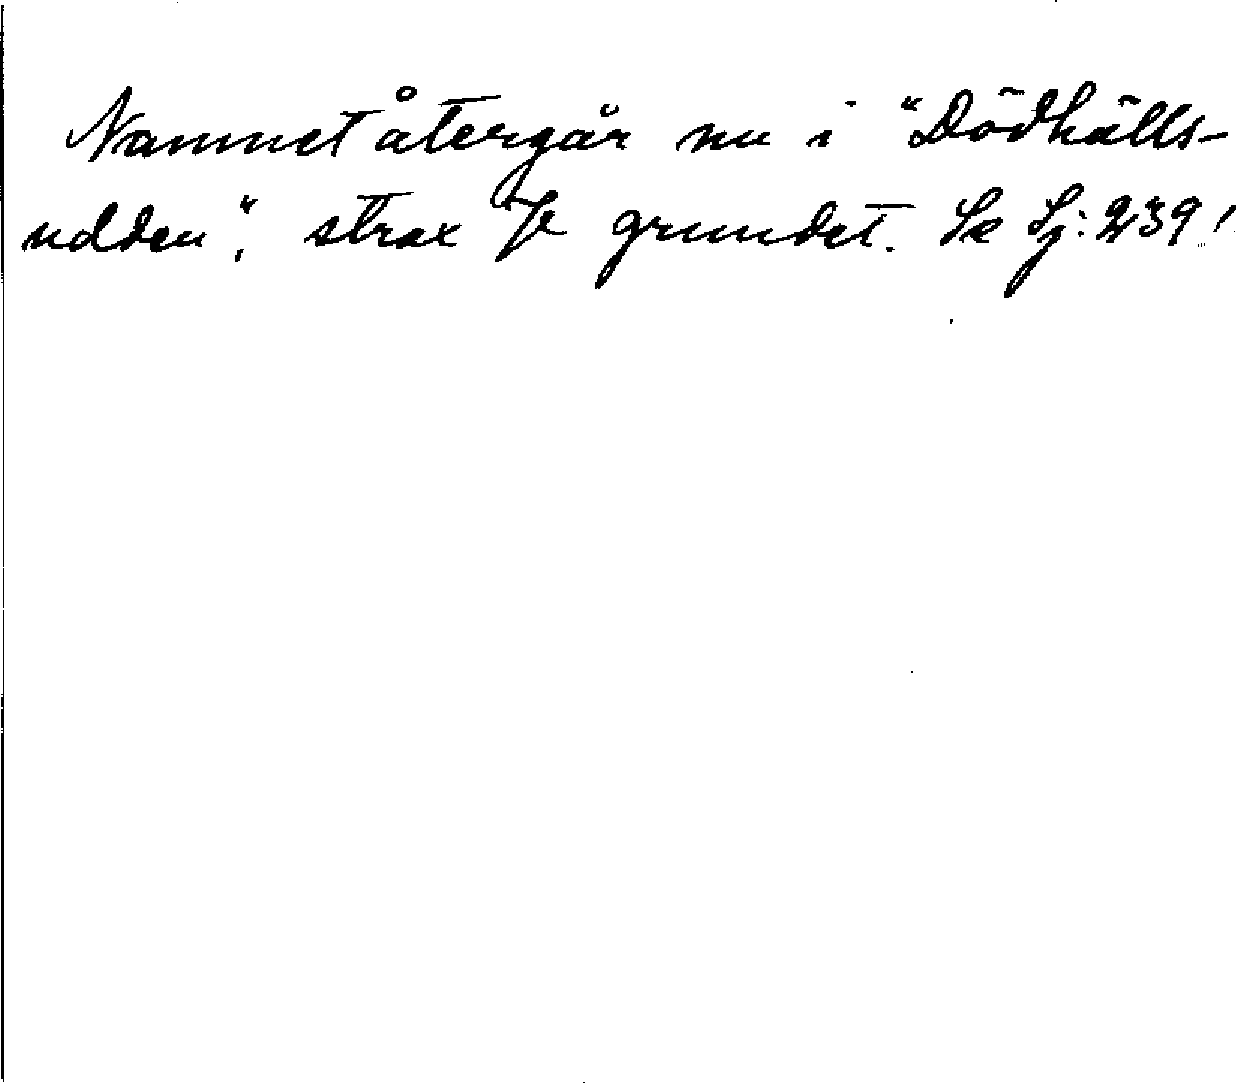 Namnet återgår nu i "Dödhälls-
udden", strax grundet. Se Lj: 239!